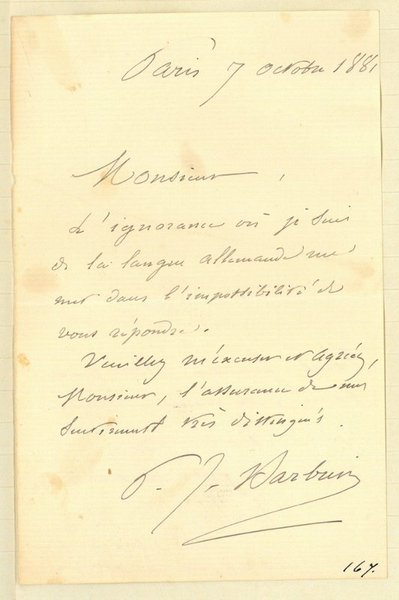 Paris 7 octobre 1881
Monsieur,
L'ignorance où je suis
de la langue allemande me
met dans l'impossibilité de
vous répondre.
Veuillez m'excuser et agréez,
Monsieur, l'assurance de mes
sentiments très distingués.
P. J. Barbier
167.